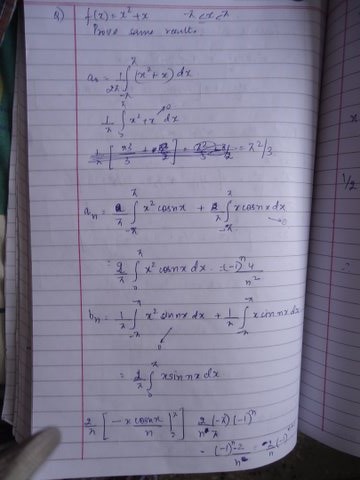 Q) f(x) = x² + x -π < x < π
Prove same result.
a₀ = 1/2π ∫_{-π}^{π} (x² + x) dx
1/π ∫_{0}^{π} x² + x dx → 0
= π²/3
aₙ = 1/π ∫_{-π}^{π} x² cosnx + 1/π ∫_{-π}^{π} x cosnx dx → 0
= 2/π ∫_{0}^{π} x² cosnx dx = (-1)ⁿ 4/n²
bₙ = 1/π ∫_{-π}^{π} x² sinnx dx + 1/π ∫_{-π}^{π} x sinnx dx
0
= 2/π ∫_{0}^{π} x sinnx dx
2/π [ -x cosnx / n |_{0}^{π} ] 2/π (-π)/n (-1)ⁿ
= (-1)ⁿ -2/n = 2/n (-1)ⁿ⁺¹
1/2